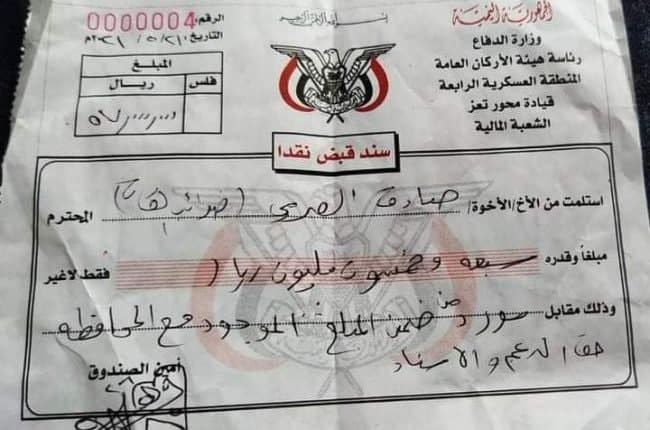 الجمهورية اليمنية
وزارة الدفاع
رئاسة هيئة الأركان العامة
المنطقة العسكرية الرابعة
قيادة محور تعز
الشعبة المالية
الرقم: 0000004
التاريخ: ٢٠٢١/٥/٢١م
المبلغ
ريال فلس
سند قبض نقدا
استلمت من الأخ/الأخوة/ صادق (ضرائب القات) المحترم
مبلغاً وقدره سبعة وخمسون مليون ريال فقط لاغير
وذلك مقابل من ضمن المبلغ الموجود مع المحافظة
حق الدعم والاسناد
أمين الصندوق